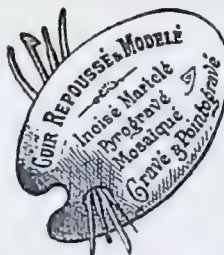 CUIR REPOUSSÉ & MODELÉ
Incisé Martelé
Pyrogravé
Mosaïqué
Gravé & Pointogravé